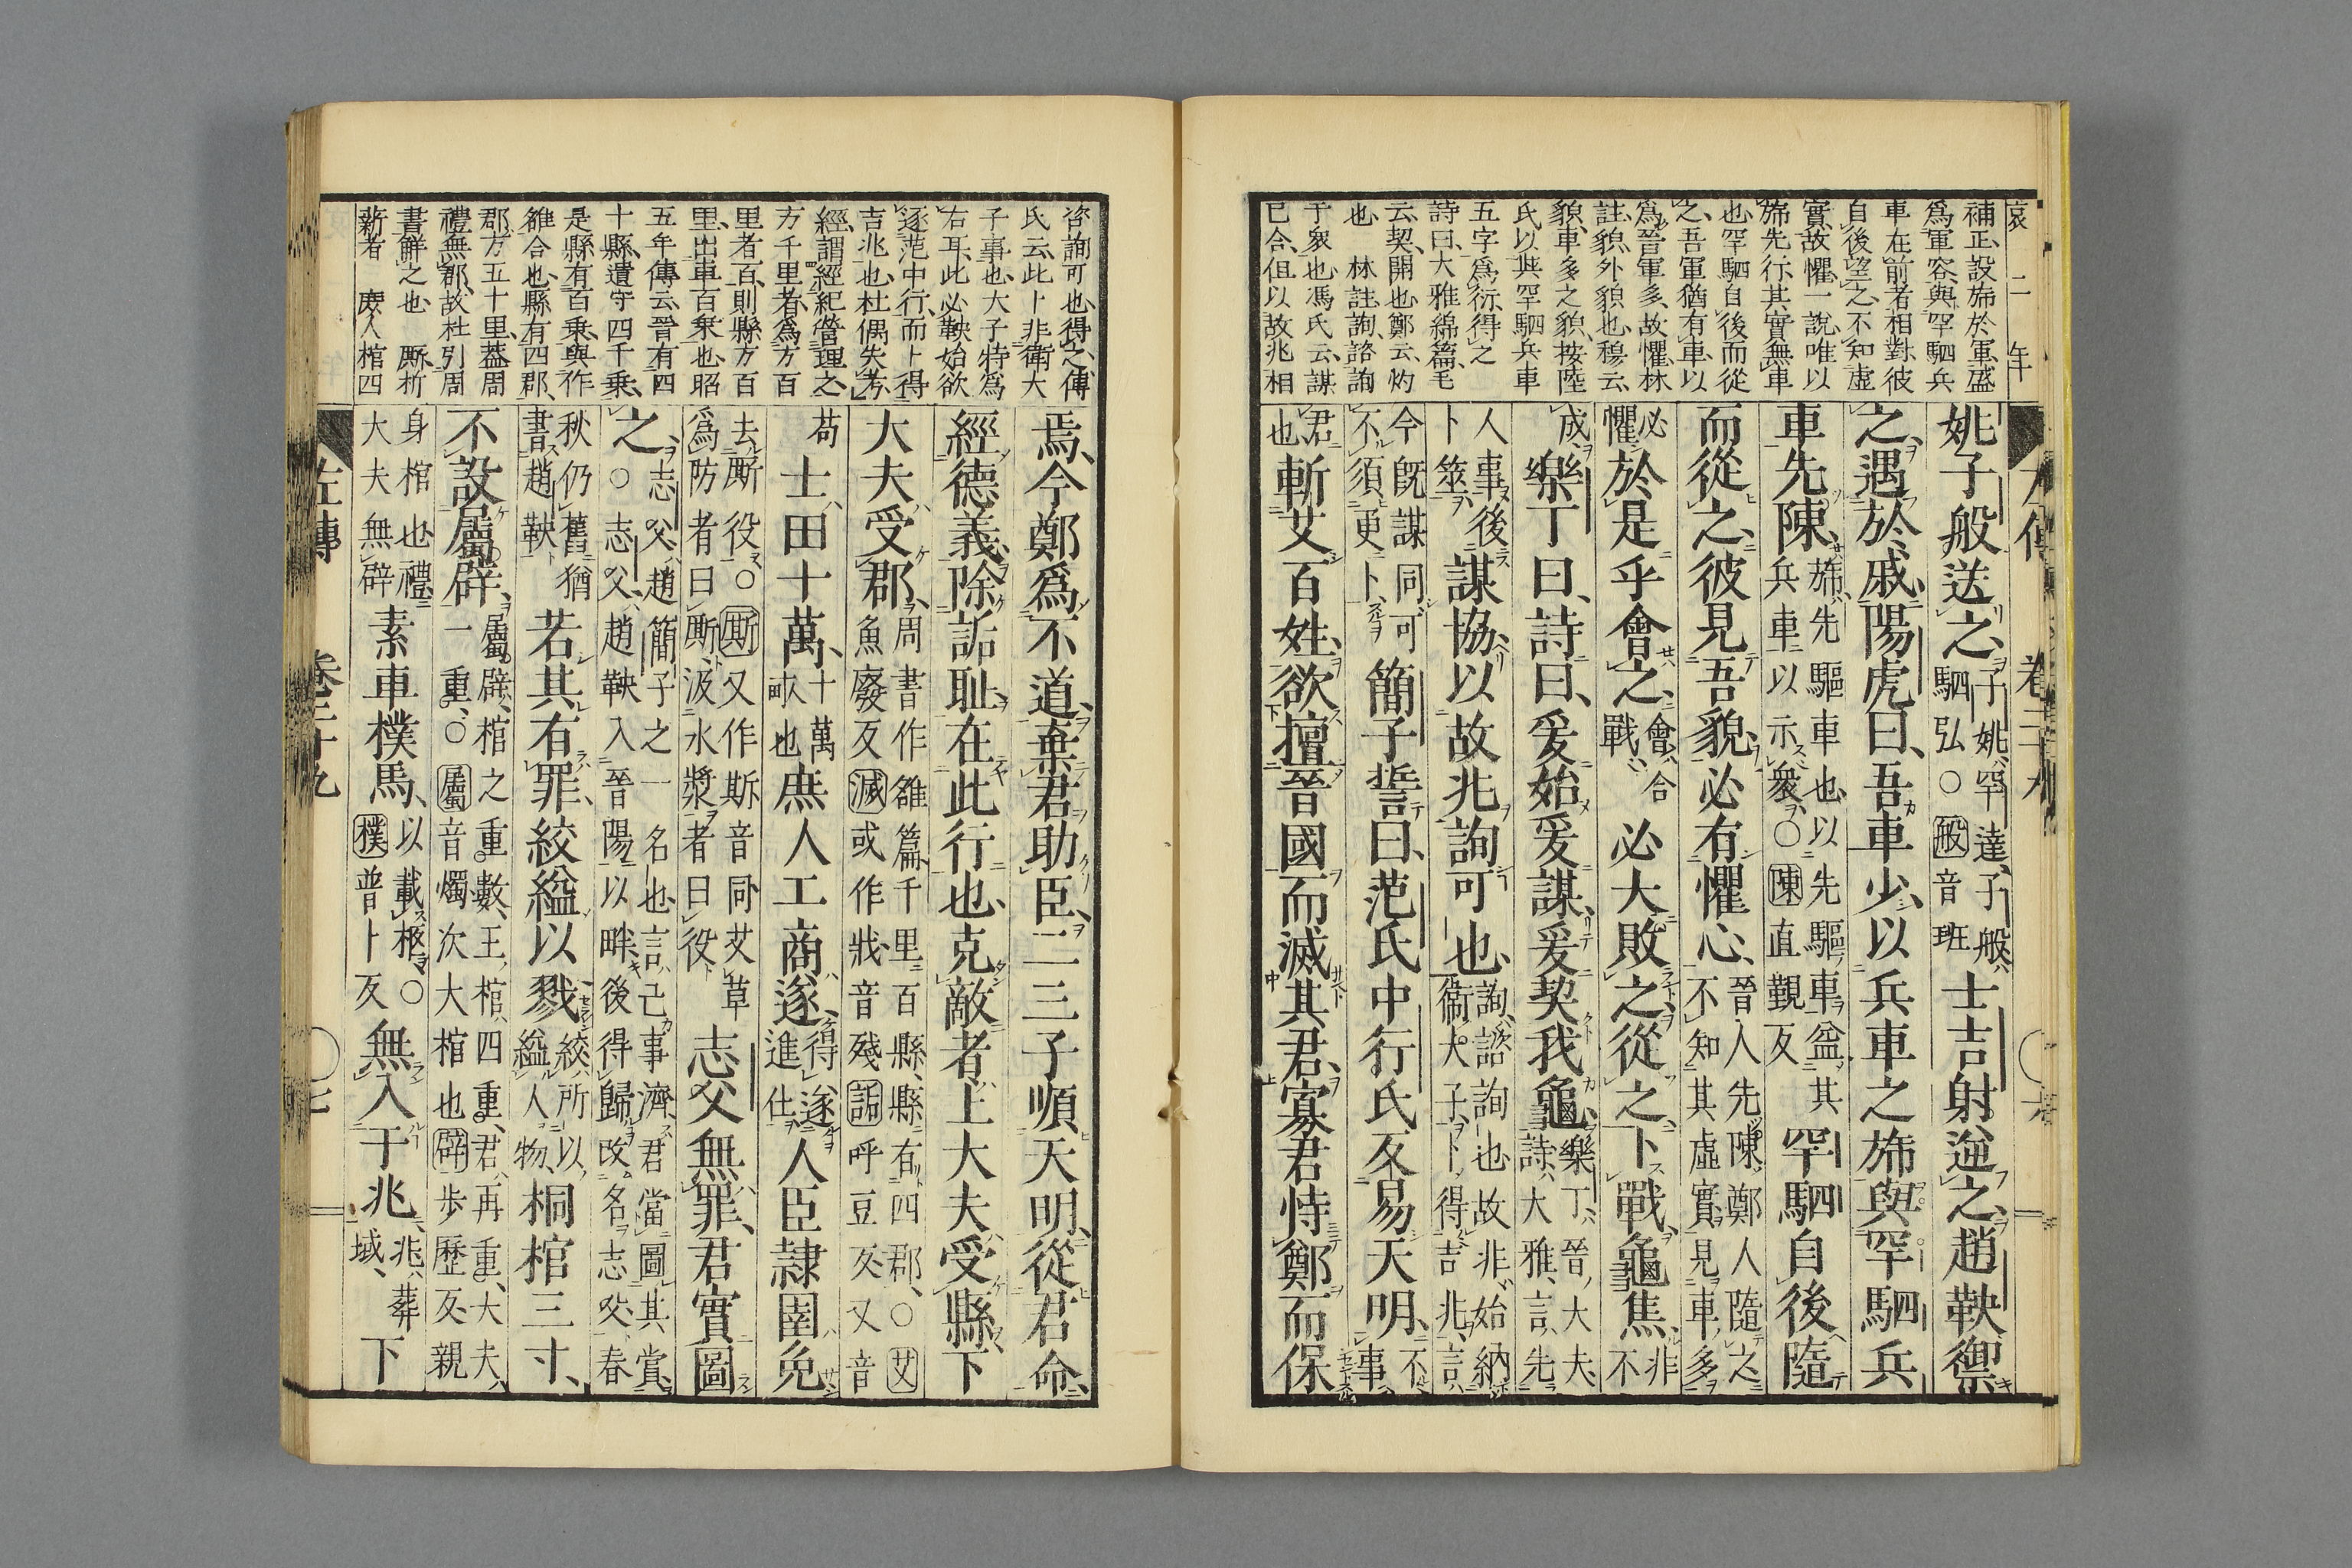 哀二年
補正、設旆於軍盛
爲軍容、與罕駟兵
車在前者相對、彼
自後望之、不知虛
實、故懼、一說、唯以
旆先行、其實無車
也、罕駟自後而從
之、吾軍猶有車、以
爲晉軍多、故懼、林
註、貌、外貌也、穆云、
貌、車多之貌、按陸
氏以與其罕駟兵車
五字爲衍、得之
詩曰、大雅綿篇、毛
云、契、開也、鄭云、灼
也 林註、詢、諮詢
于衆也、馮氏云、謀
已合、但以故兆相
姚子般送之、子姚、罕達、子般、駟弘○般音班士吉射逆之、趙鞅禦
之、遇於戚、陽虎曰、吾車少、以兵車之旆與罕駟兵
車先陳、旆、先驅車也、以先驅車益其兵車以示衆、○陳直覲反罕駟自後隨
而從之、彼見吾貌、必有懼心、晉人先陳、鄭人隨之不知其虛實見車多
必懼於是乎會之、會、合戰必大敗之、從之、卜戰、龜焦、兆不
成、樂丁曰、詩曰、爰始爰謀、爰契我龜、樂丁、晉大夫、詩、大雅、言、先
人事後卜筮謀協、以故兆、詢可也、詢、諮詢也、故兆、始納衞大子、卜、得吉兆、言、
今既謀同、可不須更卜簡子誓曰、范氏中行氏反易天明、不事
君也斬艾百姓、欲擅晉國而滅其君、寡君恃鄭而保
咨詢可也、得之、傳
氏云、此卜非衛大
子事也、大子特爲
右耳、此必鞅始欲
逐范中行、而卜得
吉兆也、杜偶失考、
經、謂經紀營理之
方千里者、爲方百
里者百、則縣方百
里、出車百乘也、昭
五年傳云、晉有四
十縣、遺守四千乘、
是縣有百乘、與作
雒合也、縣有四郡、
郡方五十里、葢周
禮無郡、故杜引周
書解之也 厮、析
薪者 庶人棺四
焉、今鄭爲不道、棄君助臣、二三子順天明、從君命、
經德義、除詬耻、在此行也、克敵者、上大夫受縣、下
大夫受郡、周書作雒篇、千里百縣、縣有四郡、○艾魚廢反滅或作戕音殘詬呼豆反又音
苟士田十萬、十萬畝也庶人工商遂、得遂進仕人臣隷圉免
去厮役○厮又作斯音同艾草爲防者曰厮、汲水漿者曰役志父無罪、君實圖
之、志父、趙簡子之一名也、言、己事濟、君當圖其賞、○志父、趙鞅入晉陽以畔、後得歸、改名志父、春
秋仍舊猶書趙鞅若其有罪、絞縊以戮、絞、所以縊人物、桐棺三寸、
不設屬辟、屬辟、棺之重數、王棺、四重、君、再重、大夫、一重、○屬音燭次大棺也辟步歷反親
身棺也禮、大夫無辟素車樸馬、以載柩、○樸普卜反無入于兆、兆、葬域、下
左傳 卷二十九 七